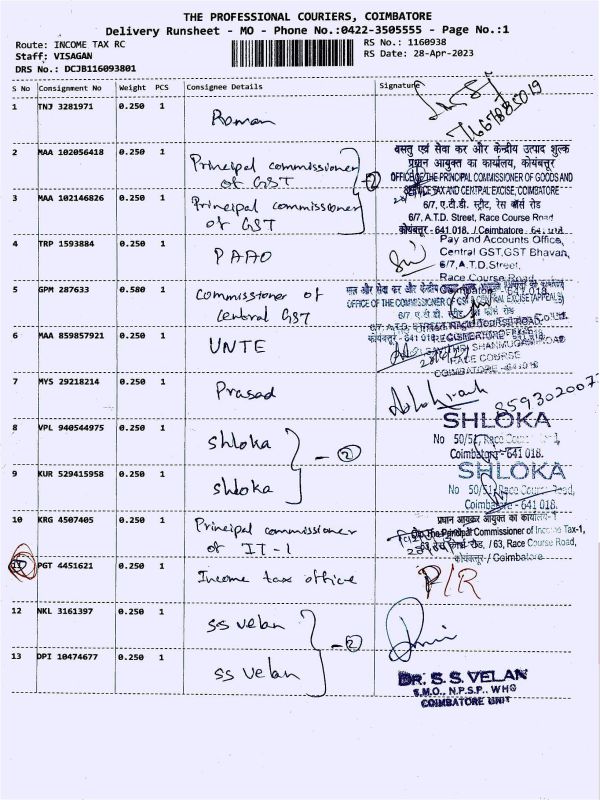 THE PROFESSIONAL COURIERS, COIMBATORE
Delivery Runsheet - MO - Phone No.:0422-3505555 - Page No.:1
Route: INCOME TAX RC
RS No.: 1160938
Staff: VISAGAN
RS Date: 28-Apr-2023
DRS No.: DCJB116093801
S No Consignment No Weight PCS Consignee Details Signature
1 TNJ 3281971 0.250 1 Raman
2 MAA 102056418 0.250 1 Principal commissioner
of GST
वस्तु एवं सेवा कर और केन्द्रीय उत्पाद शुल्क
प्रधान आयुक्त का कार्यालय, कोयंबत्तूर
OFFICE OF THE PRINCIPAL COMMISSIONER OF GOODS AND
SERVICE TAX AND CENTRAL EXCISE, COIMBATORE
3 MAA 102146826 0.250 1 Principal commissioner
of GST
2
6/7, ए.टी.डी. स्ट्रीट, रेस कोर्स रोड
6/7, A.T.D. Street, Race Course Road
कोयंबत्तूर - 641 018. / Coimbatore - 641 018.
4 TRP 1593884 0.250 1 PAAO
Pay and Accounts Office,
Central GST,GST Bhavan,
6/7,A.T.D.Street,
Race Course Road,
5 GPM 287633 0.580 1 Commissioner of
Central GST
OFFICE OF THE COMMISSIONER OF GST & CENTRAL EXCISE (APPEALS)
6 MAA 859857921 0.250 1 UNTE
RACE COURSE
COIMBATORE
7 MYS 29218214 0.250 1 Prasad
8 VPL 940544975 0.250 1 shloka
SHLOKA
No 50/51, Race Course Road,
Coimbatore - 641 018.
9 KUR 529415958 0.250 1 shloka
2
SHLOKA
No 50/51, Race Course Road,
Coimbatore - 641 018.
10 KRG 4507405 0.250 1 Principal commissioner
of IT-1
प्रधान आयकर आयुक्त का कार्यालय-1
O/o the Principal Commissioner of Income Tax-1,
63, रेस कोर्स रोड, / 63, Race Course Road,
कोयंबत्तूर / Coimbatore
PGT 4451621 0.250 1 Income tax office
P/R
12 NKL 3161397 0.250 1 ss velan
13 DPI 10474677 0.250 1 ss velan
2
DR. S. S. VELAN
S.M.O., N.P.S.P., WHO
COIMBATORE UNIT